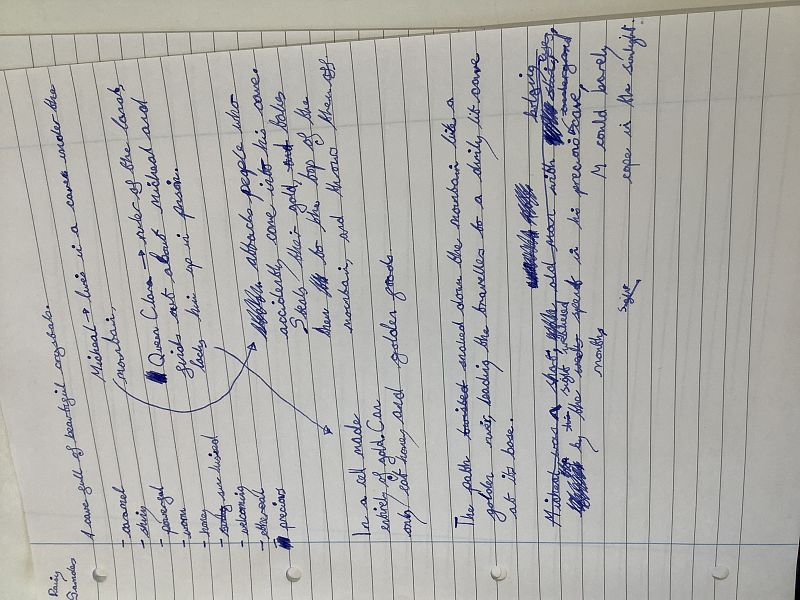 Daisy
A cave full of beautiful crystals.
- caramel
- shiny
- powerful
- warm
- honey
- sun kissed
- welcoming
- ethereal
- precious
Micheal → lives in a cave under the
mountain,
Queen Clara → ruler of the land,
finds out about Micheal and
locks him up in prison.
attacks people who
accidently come into his cave.
Steals their gold, takes
them to the top of the
mountain, and throws them off
In a cell made
entirely of gold. Can
only eat honey and golden goods.
The path twisted snaked down the mountain like a
golden river, leading the travellers to a dimly lit cave
at its base.
Micheal was a old man with bulging eyes,
his sight
by the spent in his previous cave,
months
M could barely
cope in the sunlight.
sight